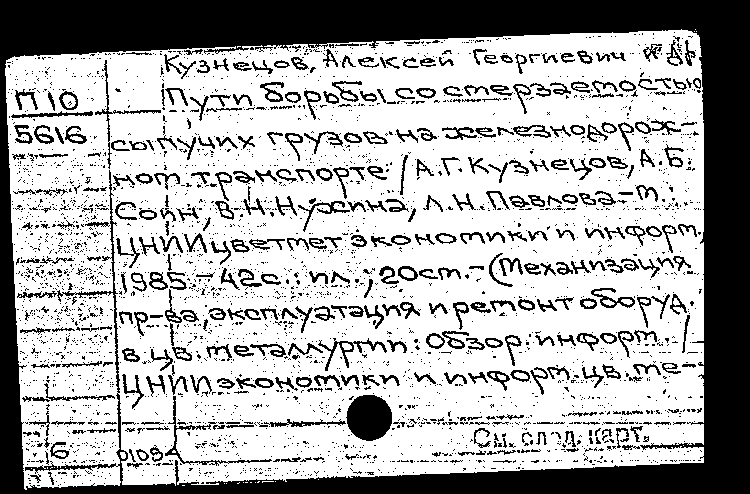 Кузнецов, Алексей Георгиевич и др.
П 10
Пути борьбы со смерзаемостью
5616
сыпучих грузов на железнодорож-
ном транспорте / А.Г. Кузнецов, А.Б.
В.Н. Нужина, Л.Н. Павлова.- М.:
ЦНИИцветмет экономики и информ.,
1985 - 42с.: ил.; 20см.- (Механизация
пр-ва, эксплуатация и ремонт оборуд.
в цв. металлургии: Обзор. информ. /
ЦНИИ экономики и информ. цв. ме-
б
01084
См. след. карт.